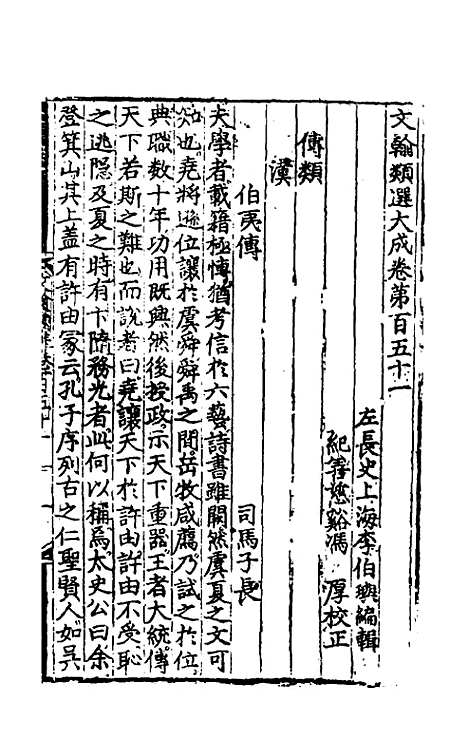 文翰類選大成卷第百五十一
左長史上海李伯璵編輯
紀善慈谿馮 厚校正
傳類
漢
伯夷傳 司馬子長
夫學者載籍極博猶考信於六藝詩書雖闕然虞夏之文可
知也堯將遜位讓於虞舜舜禹之間岳牧咸薦乃試之於位
典職數十年功用既興然後授政示天下重器王者大統傳
天下若斯之難也而說者曰堯讓天下於許由許由不受恥
之逃隱及夏之時有卞隨務光者此何以稱焉太史公曰余
登箕山其上蓋有許由冢云孔子序列古之仁聖賢人如吳